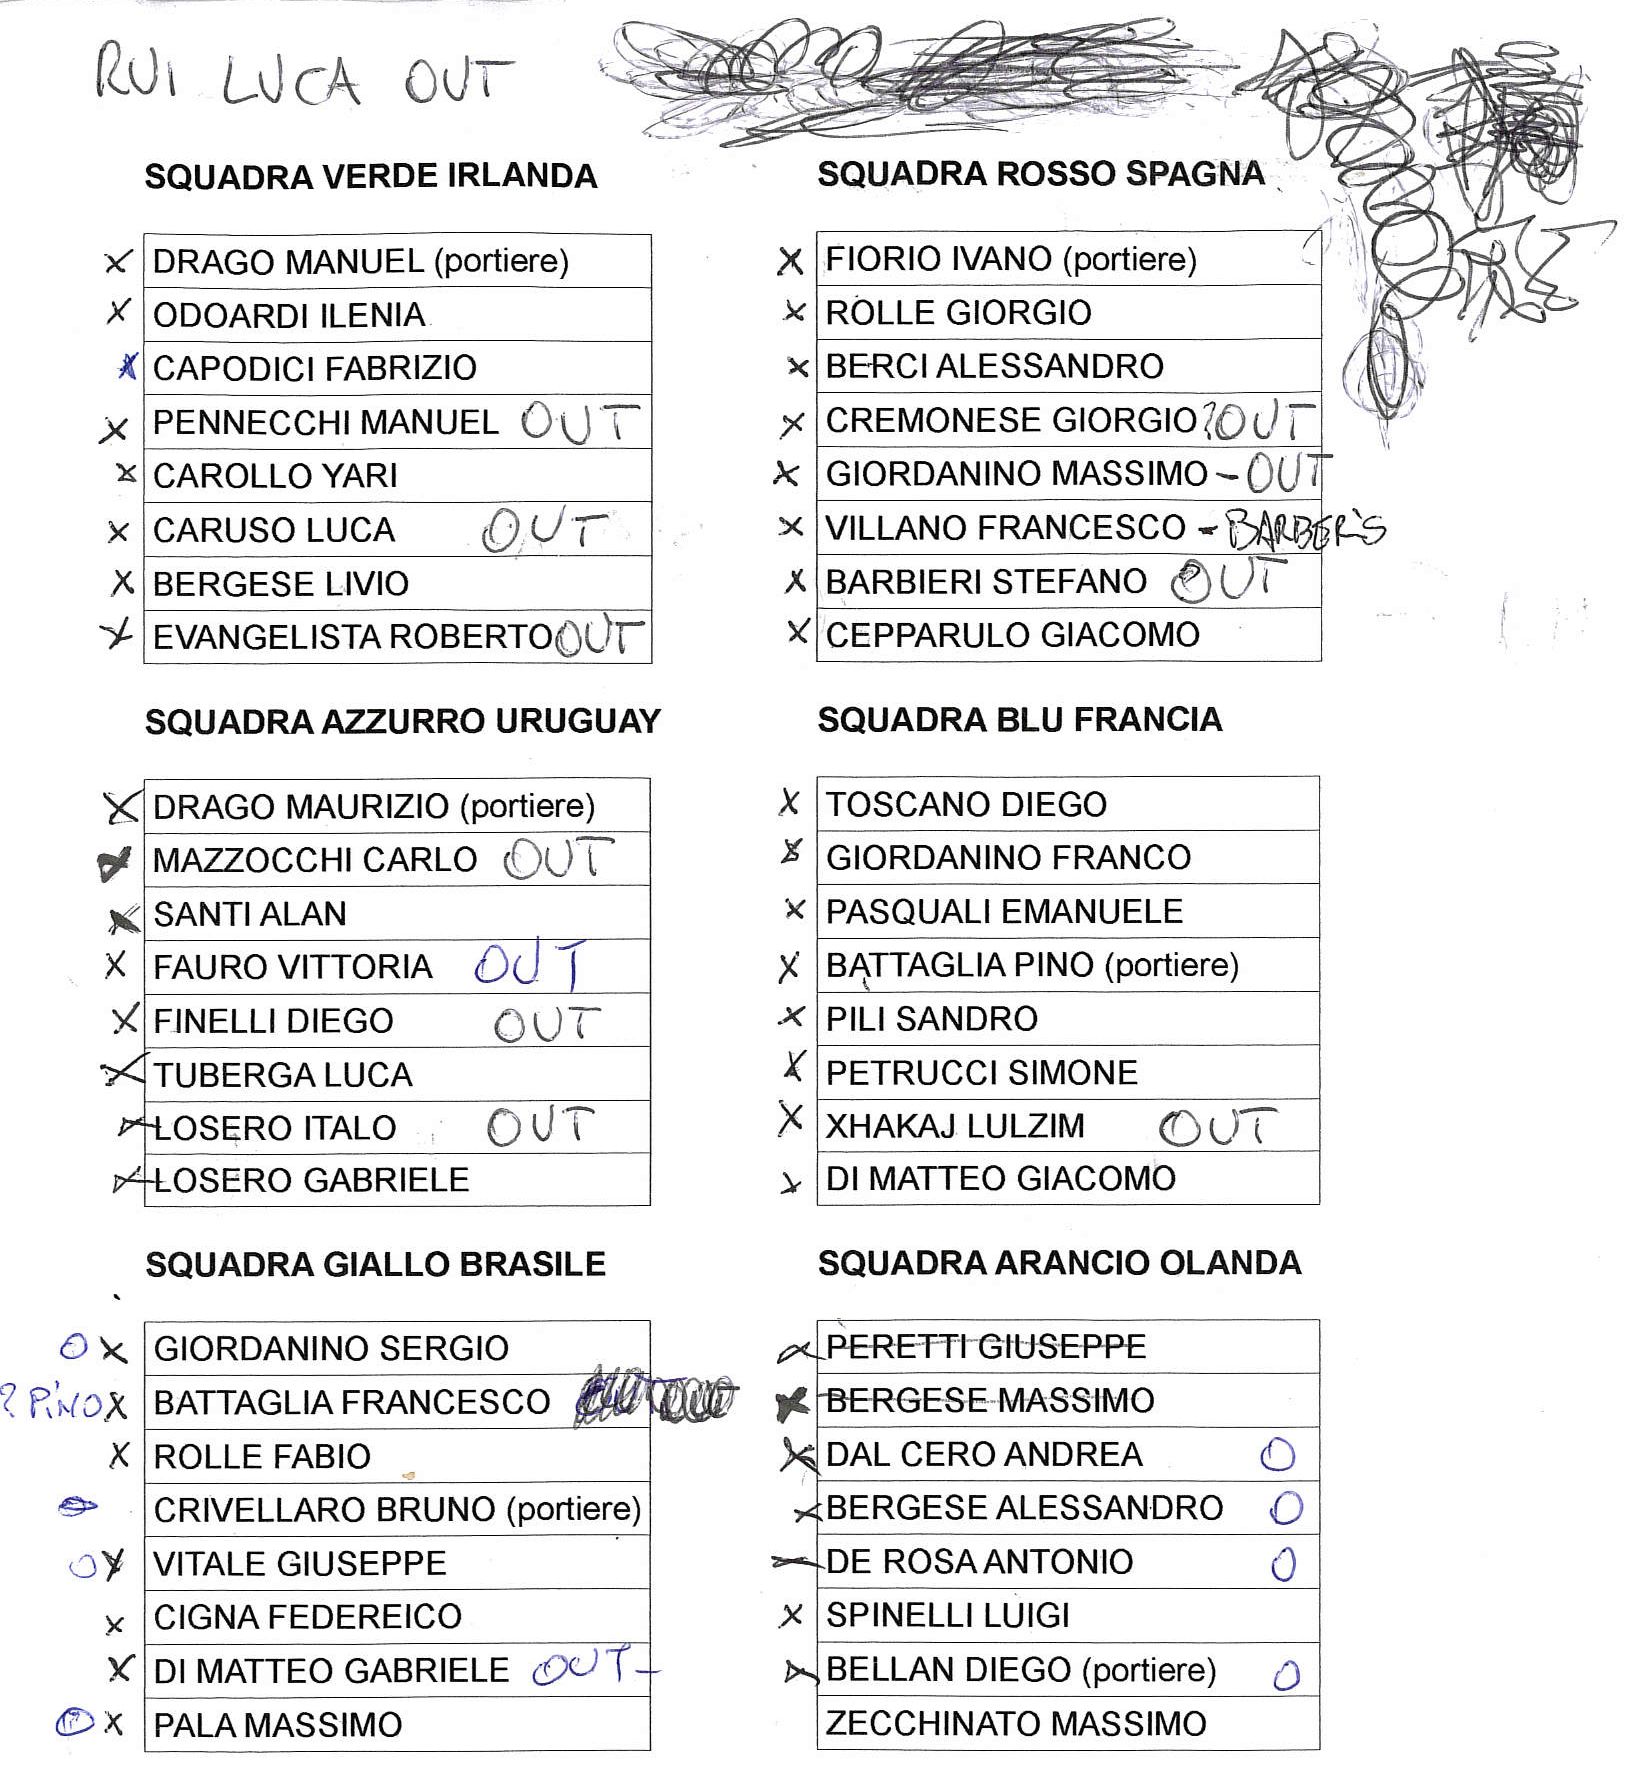 RUI LUCA OUT
SQUADRA VERDE IRLANDA
X DRAGO MANUEL (portiere)
X ODOARDI ILENIA
X CAPODICI FABRIZIO
X PENNECCHI MANUEL OUT
X CAROLLO YARI
X CARUSO LUCA OUT
X BERGESE LIVIO
X EVANGELISTA ROBERTO OUT
SQUADRA ROSSO SPAGNA
X FIORIO IVANO (portiere)
X ROLLE GIORGIO
X BERCI ALESSANDRO
X CREMONESE GIORGIO ? OUT
X GIORDANINO MASSIMO - OUT
X VILLANO FRANCESCO - BARBER'S
X BARBIERI STEFANO OUT
X CEPPARULO GIACOMO
SQUADRA AZZURRO URUGUAY
X DRAGO MAURIZIO (portiere)
X MAZZOCCHI CARLO OUT
X SANTI ALAN
X FAURO VITTORIA OUT
X FINELLI DIEGO OUT
X TUBERGA LUCA
X LOSERO ITALO OUT
X LOSERO GABRIELE
SQUADRA BLU FRANCIA
X TOSCANO DIEGO
X GIORDANINO FRANCO
X PASQUALI EMANUELE
X BATTAGLIA PINO (portiere)
X PILI SANDRO
X PETRUCCI SIMONE
X XHAKAJ LULZIM OUT
X DI MATTEO GIACOMO
SQUADRA GIALLO BRASILE
O X GIORDANINO SERGIO
? PINO X BATTAGLIA FRANCESCO
X ROLLE FABIO
CRIVELLARO BRUNO (portiere)
O X VITALE GIUSEPPE
X CIGNA FEDEREICO
X DI MATTEO GABRIELE OUT -
X PALA MASSIMO
SQUADRA ARANCIO OLANDA
X PERETTI GIUSEPPE
X BERGESE MASSIMO
X DAL CERO ANDREA O
X BERGESE ALESSANDRO O
DE ROSA ANTONIO O
X SPINELLI LUIGI
X BELLAN DIEGO (portiere) O
ZECCHINATO MASSIMO